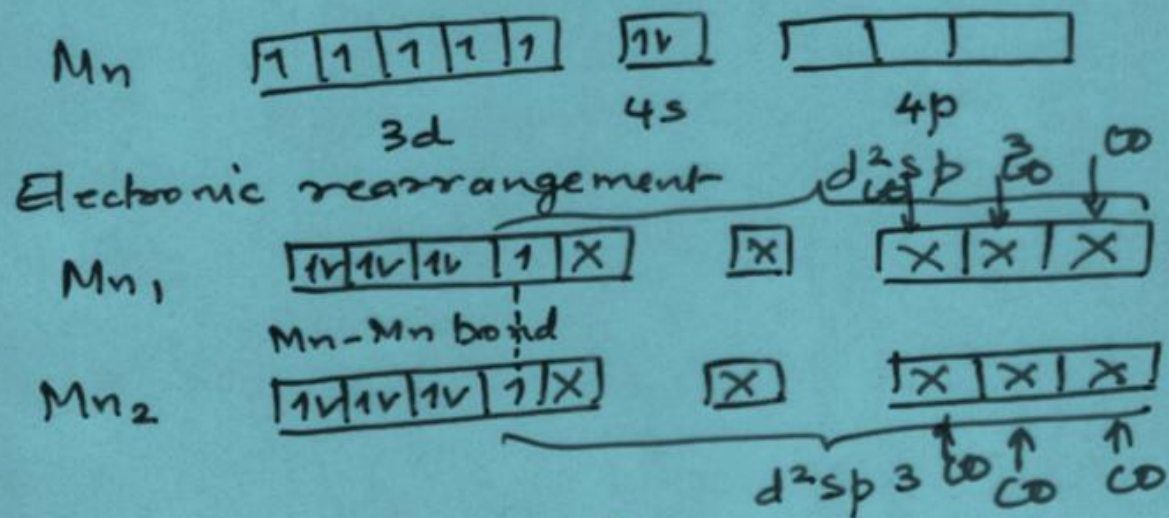 Mn 1 1 1 1 1 1v
3d 4s 4p
Electronic rearrangement d²sp³ CO CO CO
Mn₁ 1v 1v 1v 1 X X X X X
Mn-Mn bond
Mn₂ 1v 1v 1v 1 X X X X X
d²sp3 CO CO CO